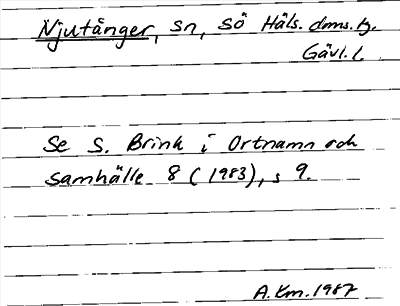 Njutånger, sn, Sö Häls. dms. h.
Gävl. l.
Se S. Brink i Ortnamn och
samhälle 8 (1983), s 9.
A. Km. 1987